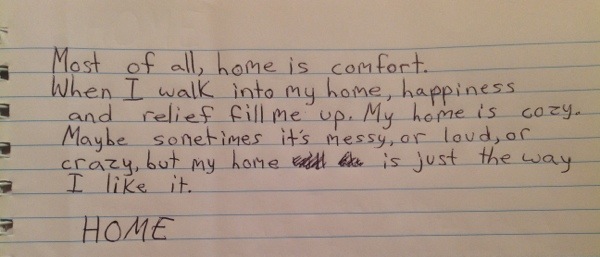 Most of all, home is comfort.
When I walk into my home, happiness
and relief fill me up. My home is cozy.
Maybe sometimes it's messy, or loud, or
crazy, but my home is just the way
I like it.
HOME